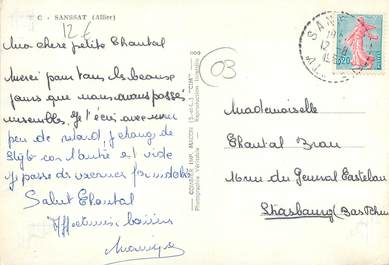 C - SANSSAT (Allier)
12€
Ma chere petite Chantal
Merci pour tous les beaux
jours que nous avons passés
ensemble. Je t'écri avec un
peu de retard, je change de
stylo car l'autre est vide
Je passe de vacances formidable
Salut Chantal
Affectueux baisers
COMBIER IMP. MACON (S.-et-L.) "CIM"
Photographie Véritable - Reproduction Interdite
03
0,20
12
Mademoiselle
Chantal Brau
rue du General Castelnau
Strasbourg (Bas Rhin